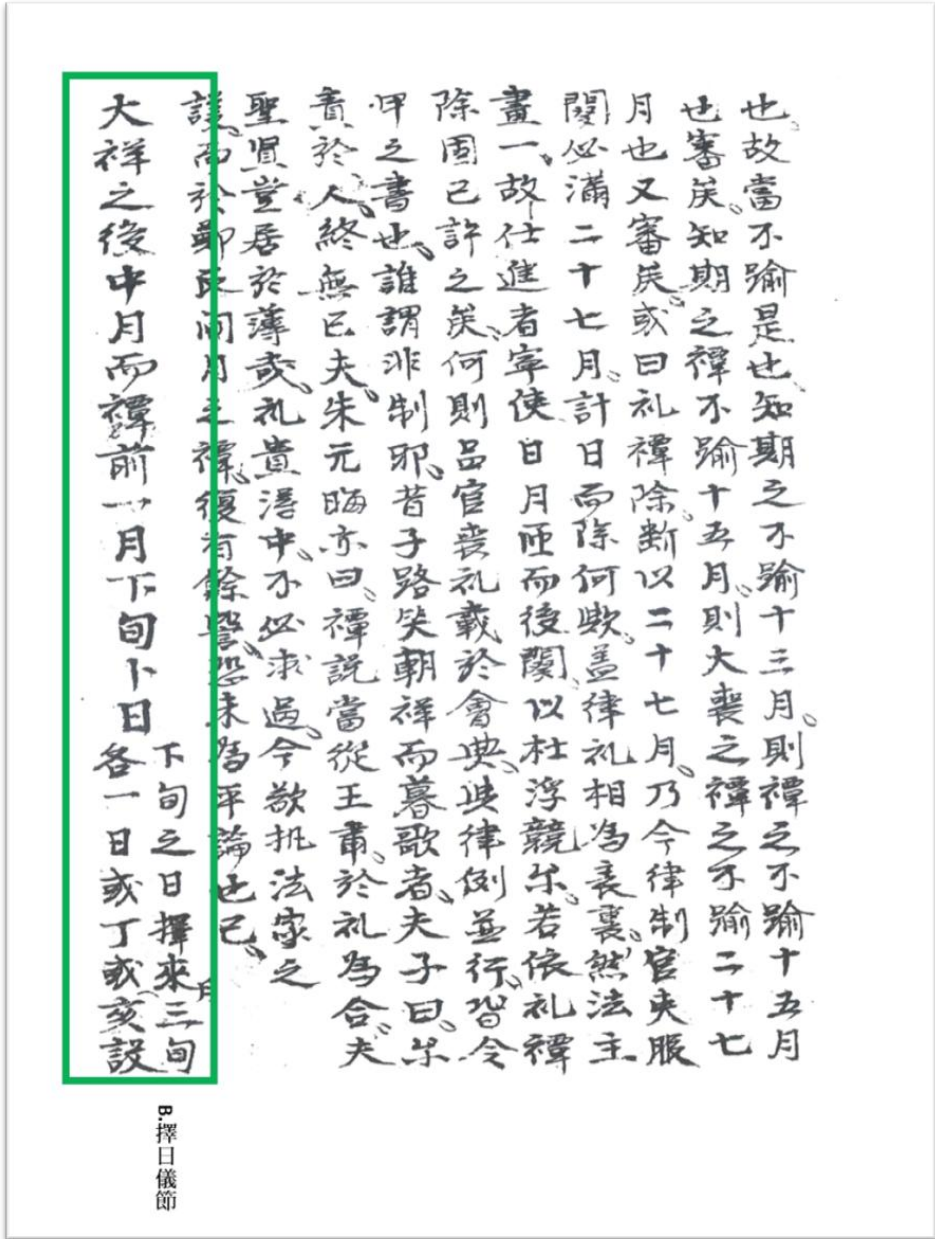 也故當不踰是也知期之不踰十三月則禫之不踰十五月
也審矣知期之禫不踰十五月則大喪之禫之不踰二十七
月也又審矣或曰礼禫除断以二十七月乃今律制官吏服
闋必滿二十七月計日而除何歟盖律礼相爲表裏然法主
畫一故仕進者寧使日月匝而後闋以杜浮競尔若依礼禫
除固已許之矣何則品官喪礼載於會典与律例並行皆令
甲之書也誰謂非制耶昔子路笑朝祥而暮歌者夫子曰尔
責於人終無已夫朱元晦亦曰禫説當從王肅於礼爲合夫
聖賢豈居於薄哉礼貴得中不必求過今欲扼法家之
議而於鄭氏间月之禫復有餘訾恐未爲平論也已
大祥之後中月而禫前一月下旬卜日
下旬之日擇來月三旬
各一日或丁或亥設
B.擇日儀節